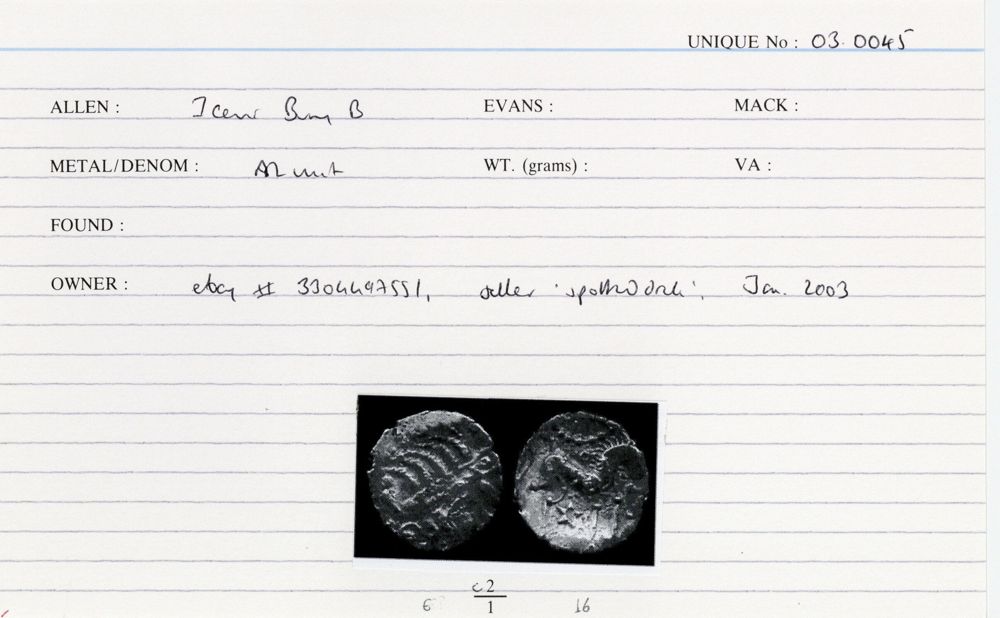 UNIQUE No : 03.0045
ALLEN : Iceni Bury B EVANS : MACK :
METAL/DENOM : AR unit WT. (grams) : VA :
FOUND :
OWNER : ebay # 3304497551, seller Jan. 2003
c2
1
6 16